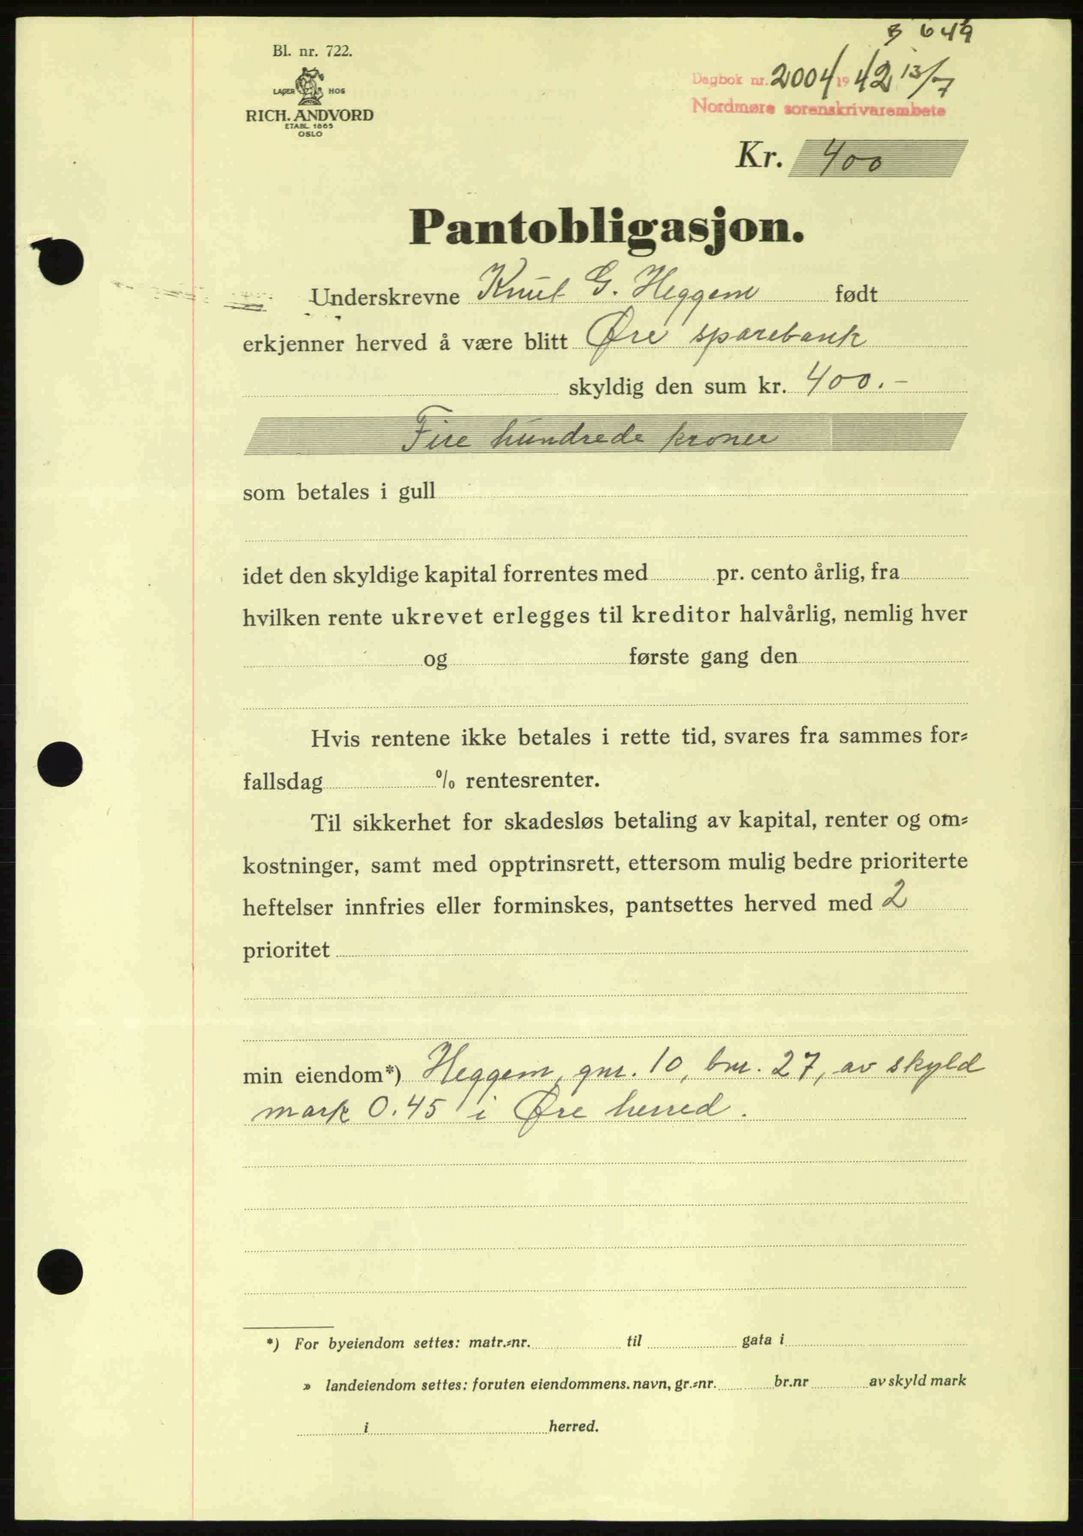 B 649
Bl. nr. 722.
LAGER HOS
RICH. ANDVORD
ETABL. 1865
OSLO
Dagbok nr. 2004/1942 13/7
Nordmøre sorenskrivarembete
Kr. 400
Pantobligasjon.
Underskrevne Knut G. Heggem født
erkjenner herved å være blitt Øre sparebank
skyldig den sum kr. 400.-
Fire hundrede kroner
som betales i gull
idet den skyldige kapital forrentes med pr. cento årlig, fra
hvilken rente ukrevet erlegges til kreditor halvårlig, nemlig hver
og første gang den
Hvis rentene ikke betales i rette tid, svares fra sammes for-
fallsdag % rentesrenter.
Til sikkerhet for skadesløs betaling av kapital, renter og om-
kostninger, samt med opptrinsrett, ettersom mulig bedre prioriterte
heftelser innfries eller forminskes, pantsettes herved med 2
prioritet
min eiendom*) Heggem, gnr. 10, bnr. 27, av skyld
mark 0.45 i Øre herred.
*) For byeiendom settes: matr.-nr. til gata i
» landeiendom settes: foruten eiendommens navn, gr.-nr. br.nr av skyld mark
i herred.